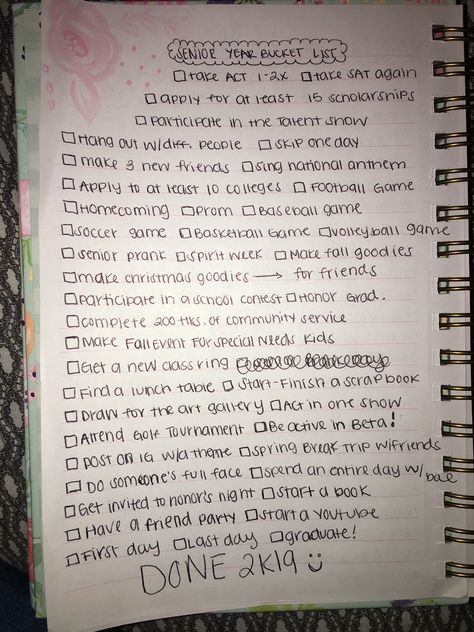 SENIOR YEAR BUCKET LIST
☐ take ACT 1-2x ☐ take SAT again
☐ apply for at least 15 scholarships
☐ Participate in the Talent show
☐ Hang out w/diff. people ☐ skip one day
☐ make 3 new friends ☐ sing national anthem
☐ Apply to at least 10 colleges ☐ Football Game
☐ Homecoming ☐ Prom ☐ Baseball game
☐ soccer game ☐ Basketball Game ☐ volleyball game
☐ senior prank ☐ spirit week ☐ Make fall goodies
☐ make christmas goodies → for friends
☐ participate in a school contest ☐ Honor Grad.
☐ complete 200 hrs. of community service
☐ Make Fall Event For Special Needs Kids
☐ Get a new class ring ☐
☐ Find a lunch table ☐ Start-Finish a scrapbook
☐ Draw for the art gallery ☐ Act in one show
☐ Attend Golf Tournament ☐ Be active in Beta!
☐ post on IG w/a theme ☐ spring Break Trip w/friends
☐ Do someone's full face ☐ spend an entire day w/ bae
☐ Get invited to honor's night ☐ start a book
☐ Have a friend party ☐ start a youtube
☐ First day ☐ Last day ☐ graduate!
DONE 2K19